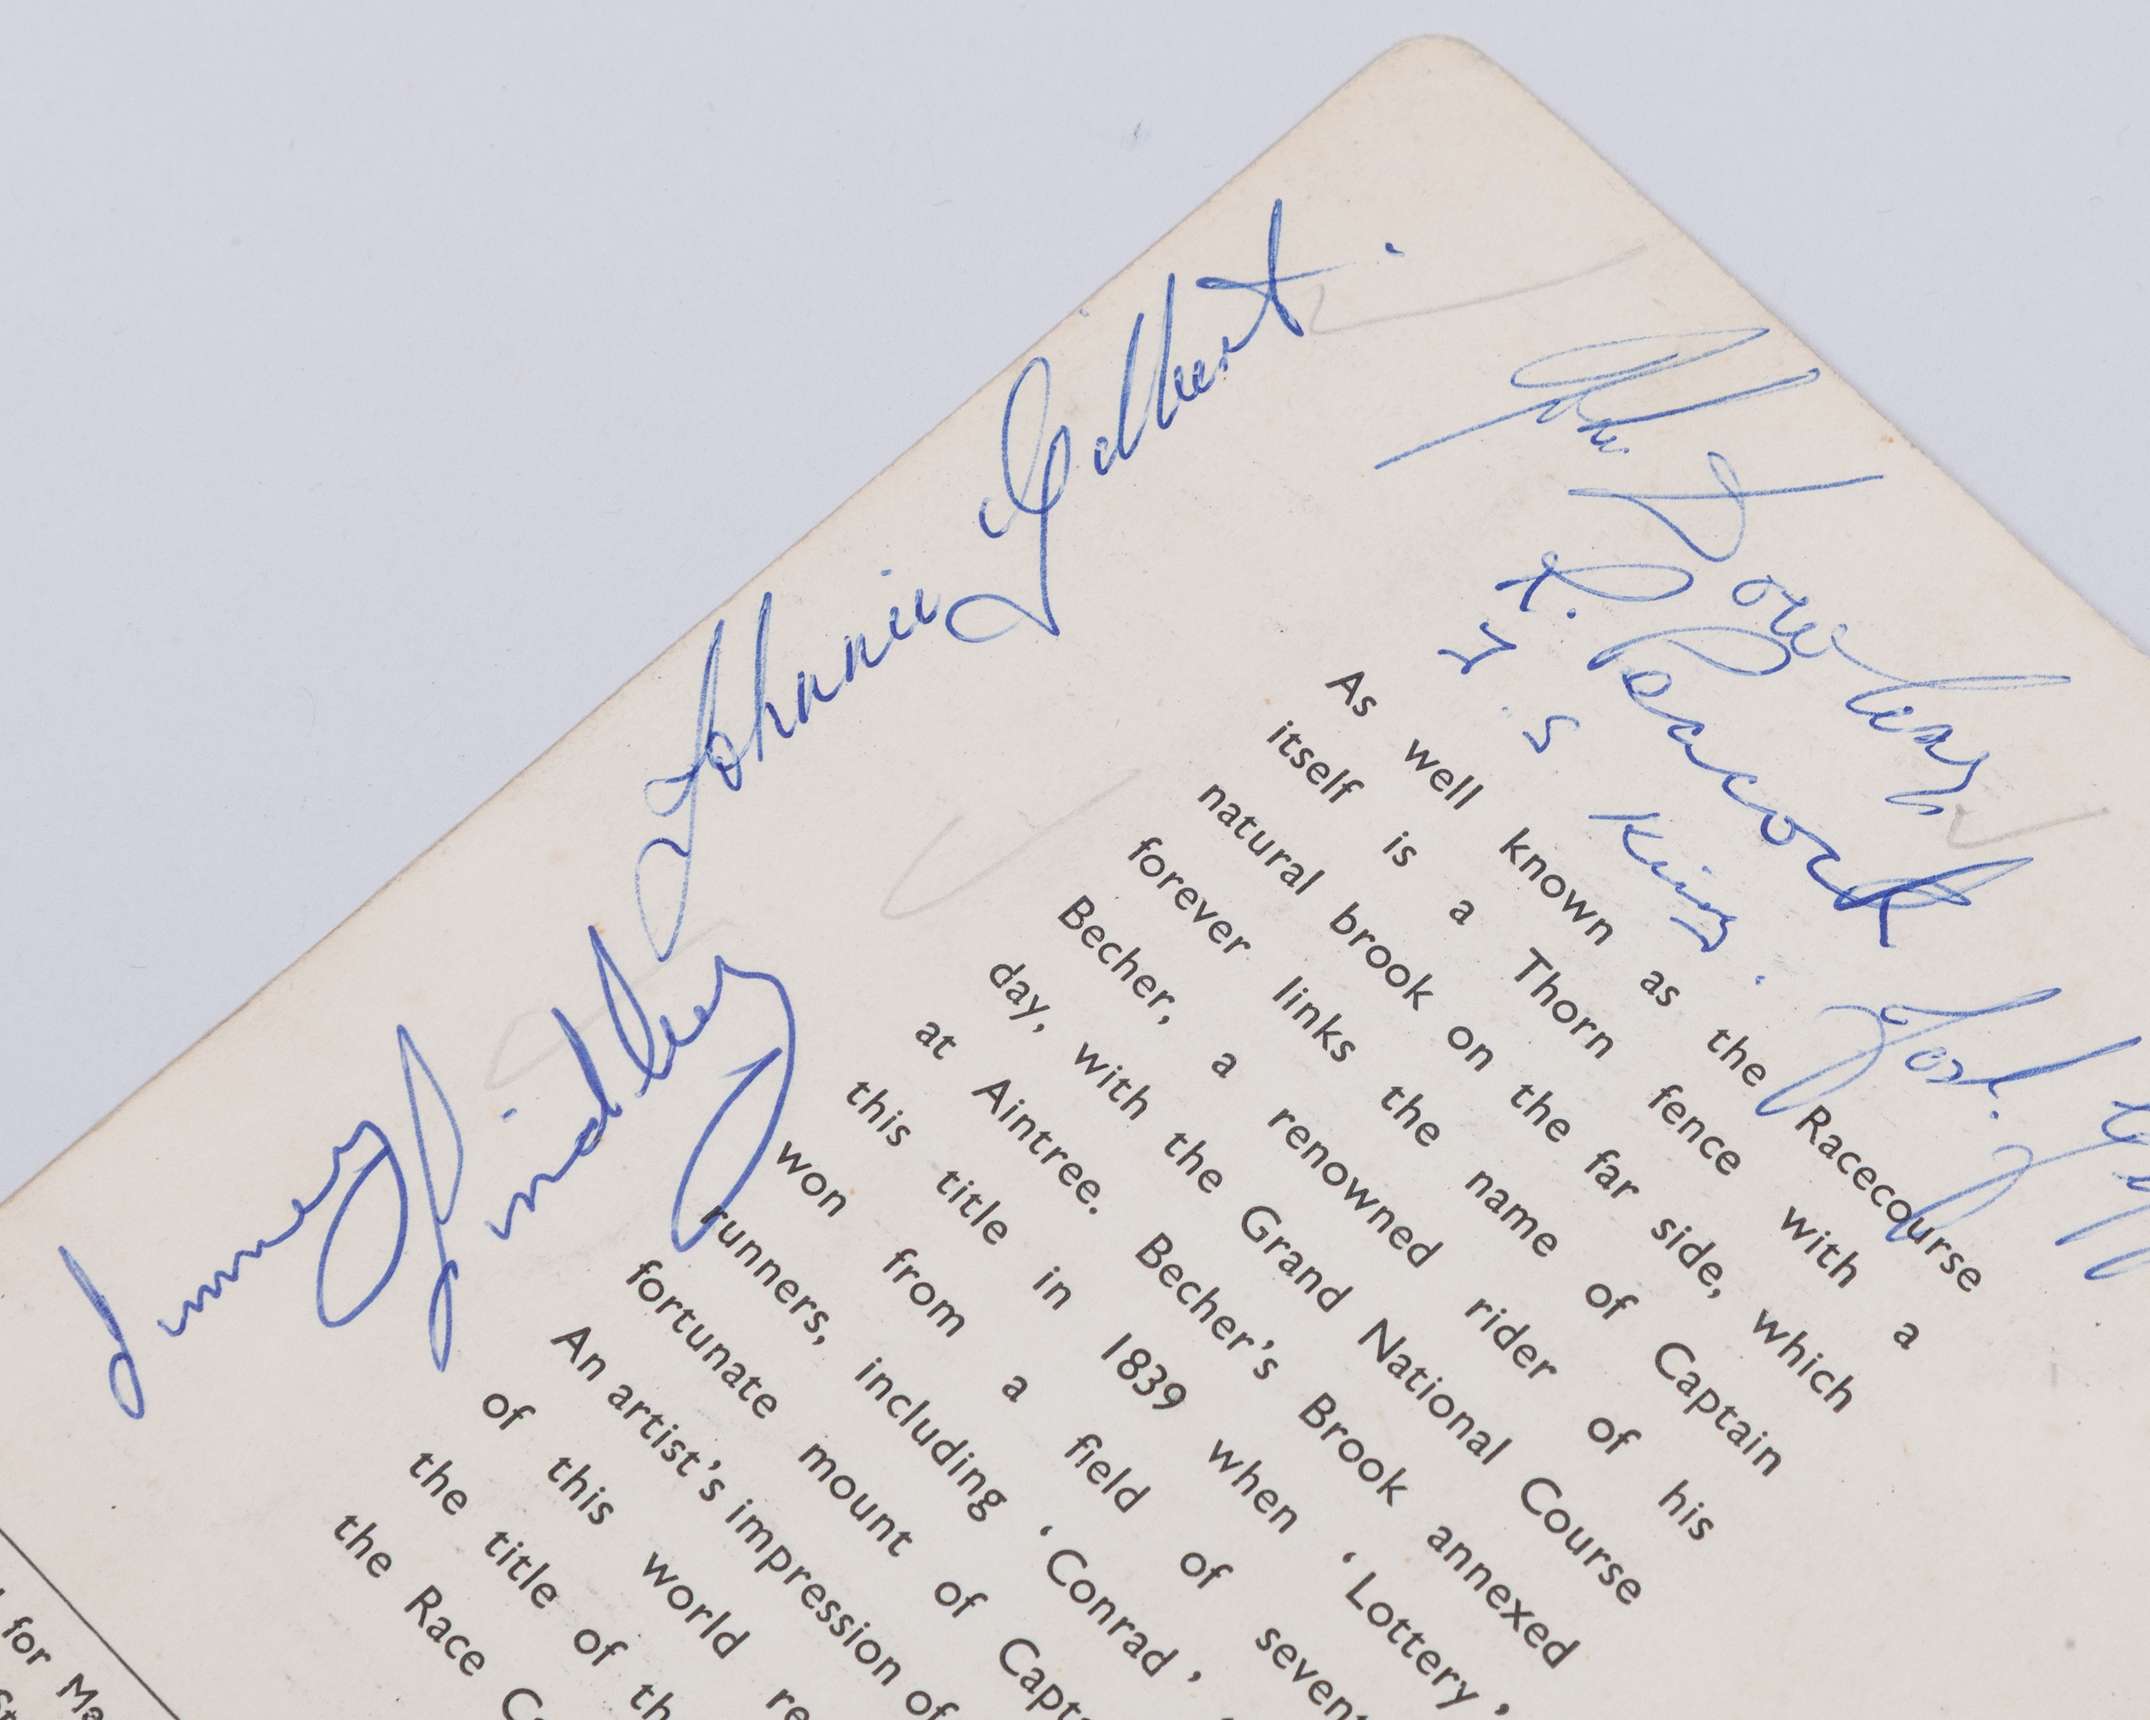 Johnnie Gilbert.
Jimmy Lindley
John
R. Peacock
J. S King.
Josh.
As well known as the Racecourse
itself is a Thorn fence with a
natural brook on the far side, which
forever links the name of Captain
Becher, a renowned rider of his
day, with the Grand National Course
at Aintree. Becher's Brook annexed
this title in 1839 when ‘Lottery’
won from a field of sevent
runners, including ‘Conrad’,
fortunate mount of Capt
An artist's impression of
of this world re
the title of th
the Race C
for Ma
St